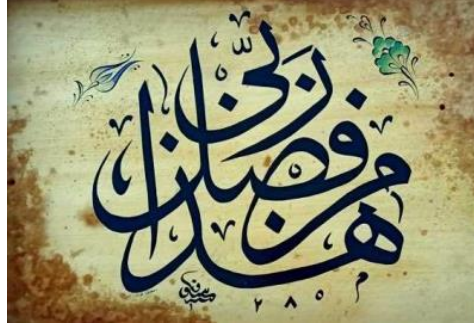 هذا من فضل ربي
٢ ٨ ٥